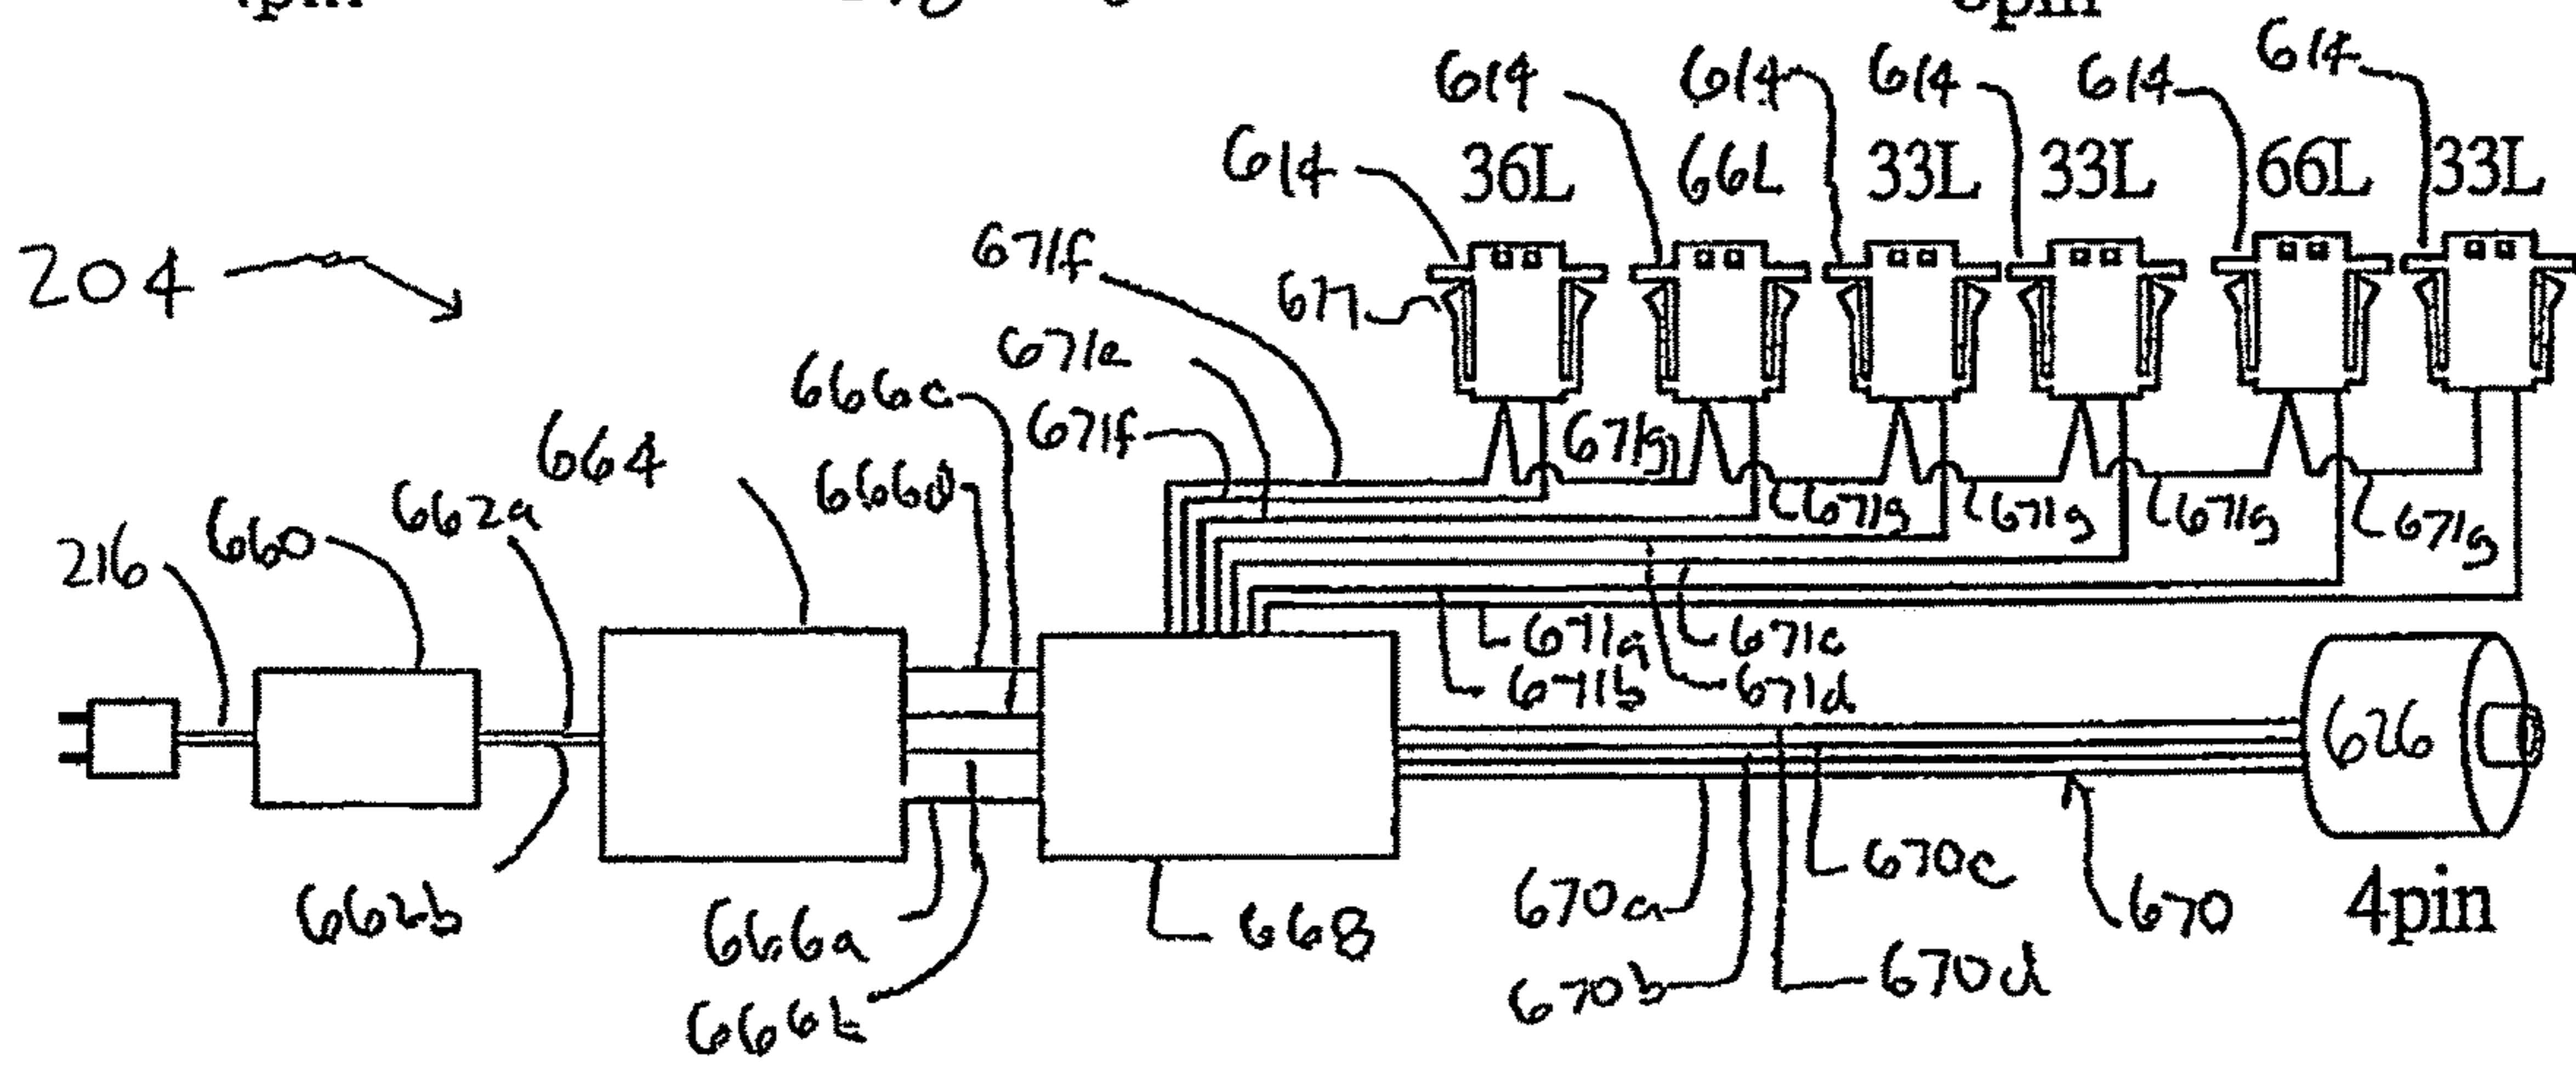 614 614 614 614 614
614 36L 66L 33L 33L 66L 33L
204 671f 677
671e
666c 671f 671g
664 666d
216 660 662a 671g 671g 671g 671g
671a 671c
671b 671d
626
662b 666a 668 670a 670c 670 4pin
666b 670b 670d